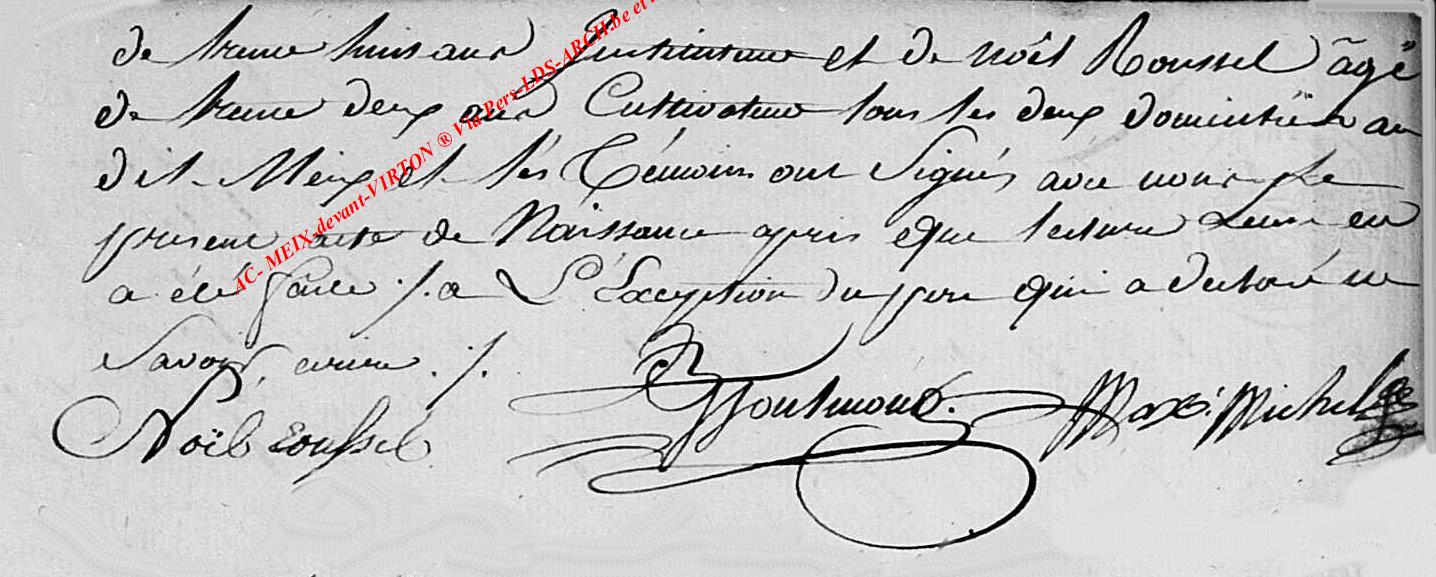 de trente huit ans Instituteur et de Noël Roussel âgé
de trente deux ans Cultivateur tous les deux domiciliés au
dit Meix et les Témoins ont Signés avec nous le
present acte de Naissance apres que lecture Leur en
a été faite ./. a L'Exception du pere qui a declaré ne
Savoir ecrire ./.
Noël roussel
Marc. Michel
AC- MEIX-devant-VIRTON ® Via Pers-LDS-ARCH.be et